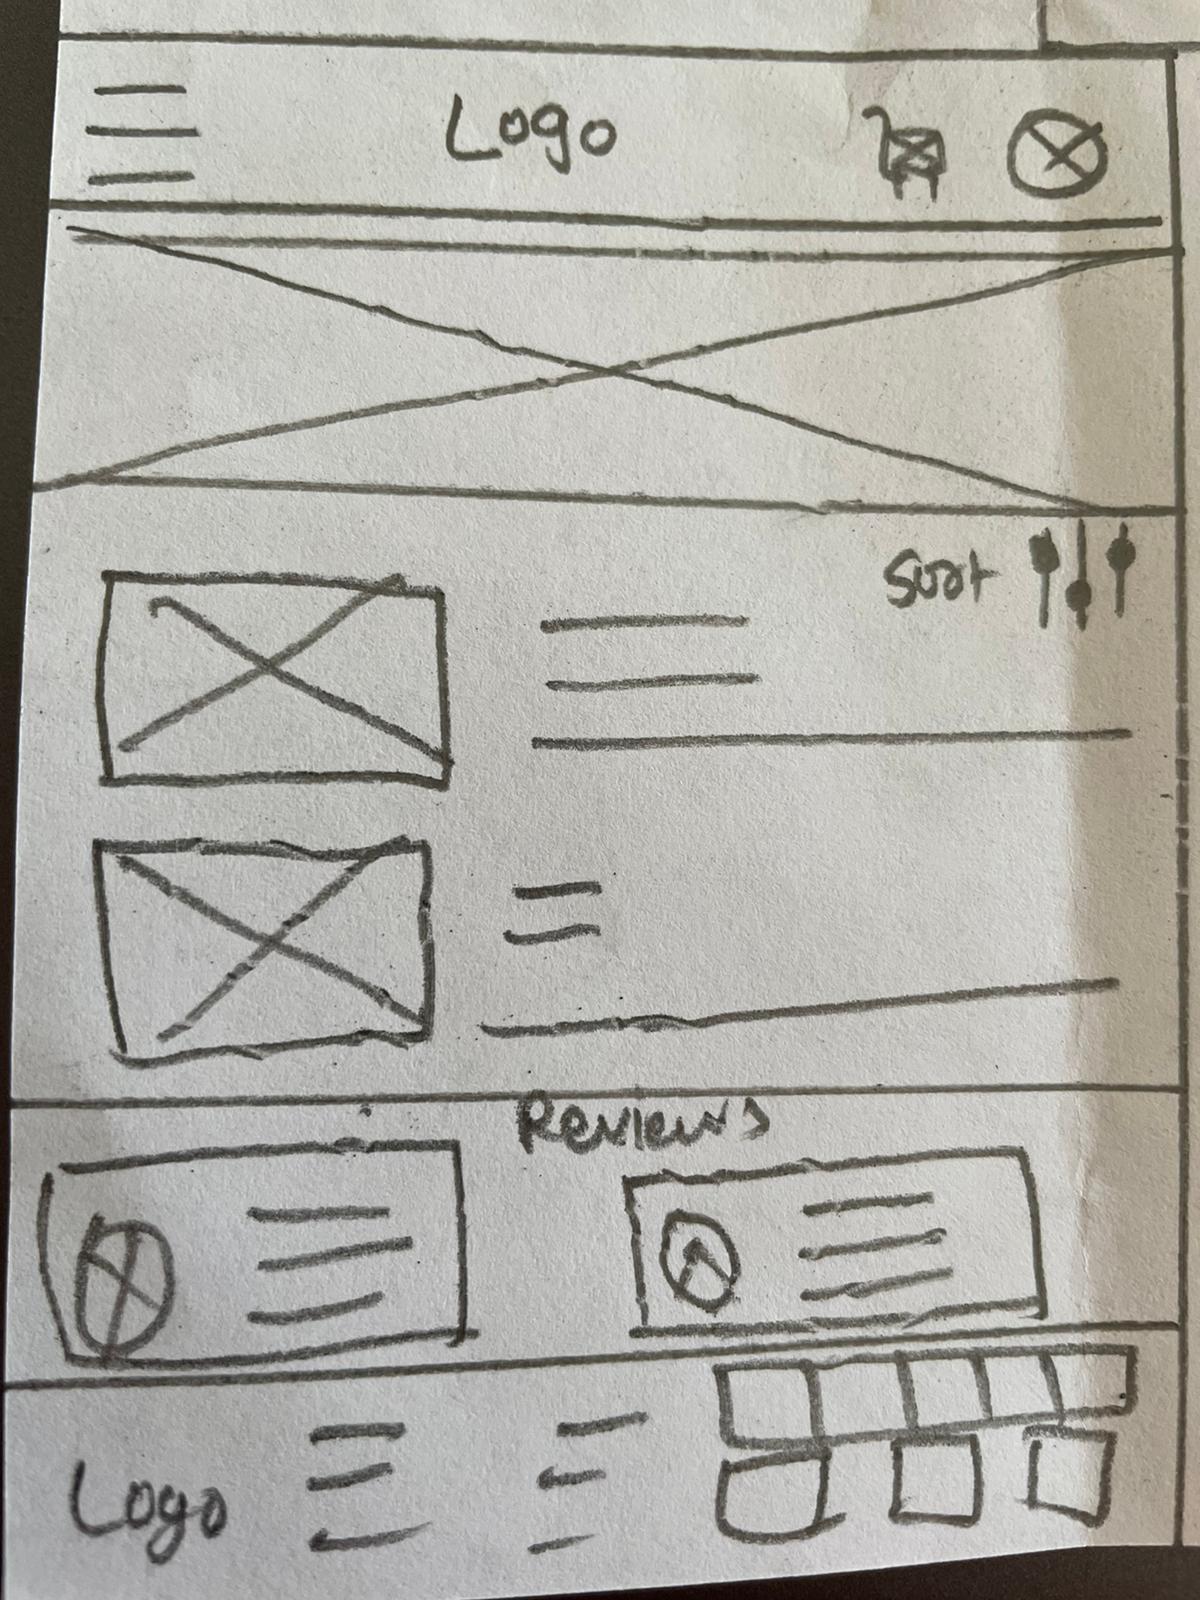 Logo
Sort
Reviews
Logo